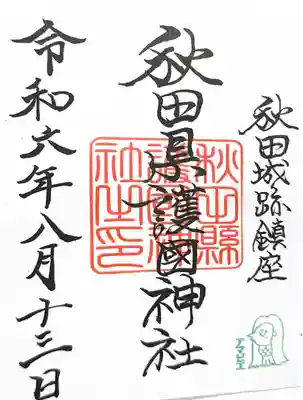 秋田城跡鎮座
秋田県護國神社
秋田縣護國神社之印
令和六年八月十三日
アマビエ